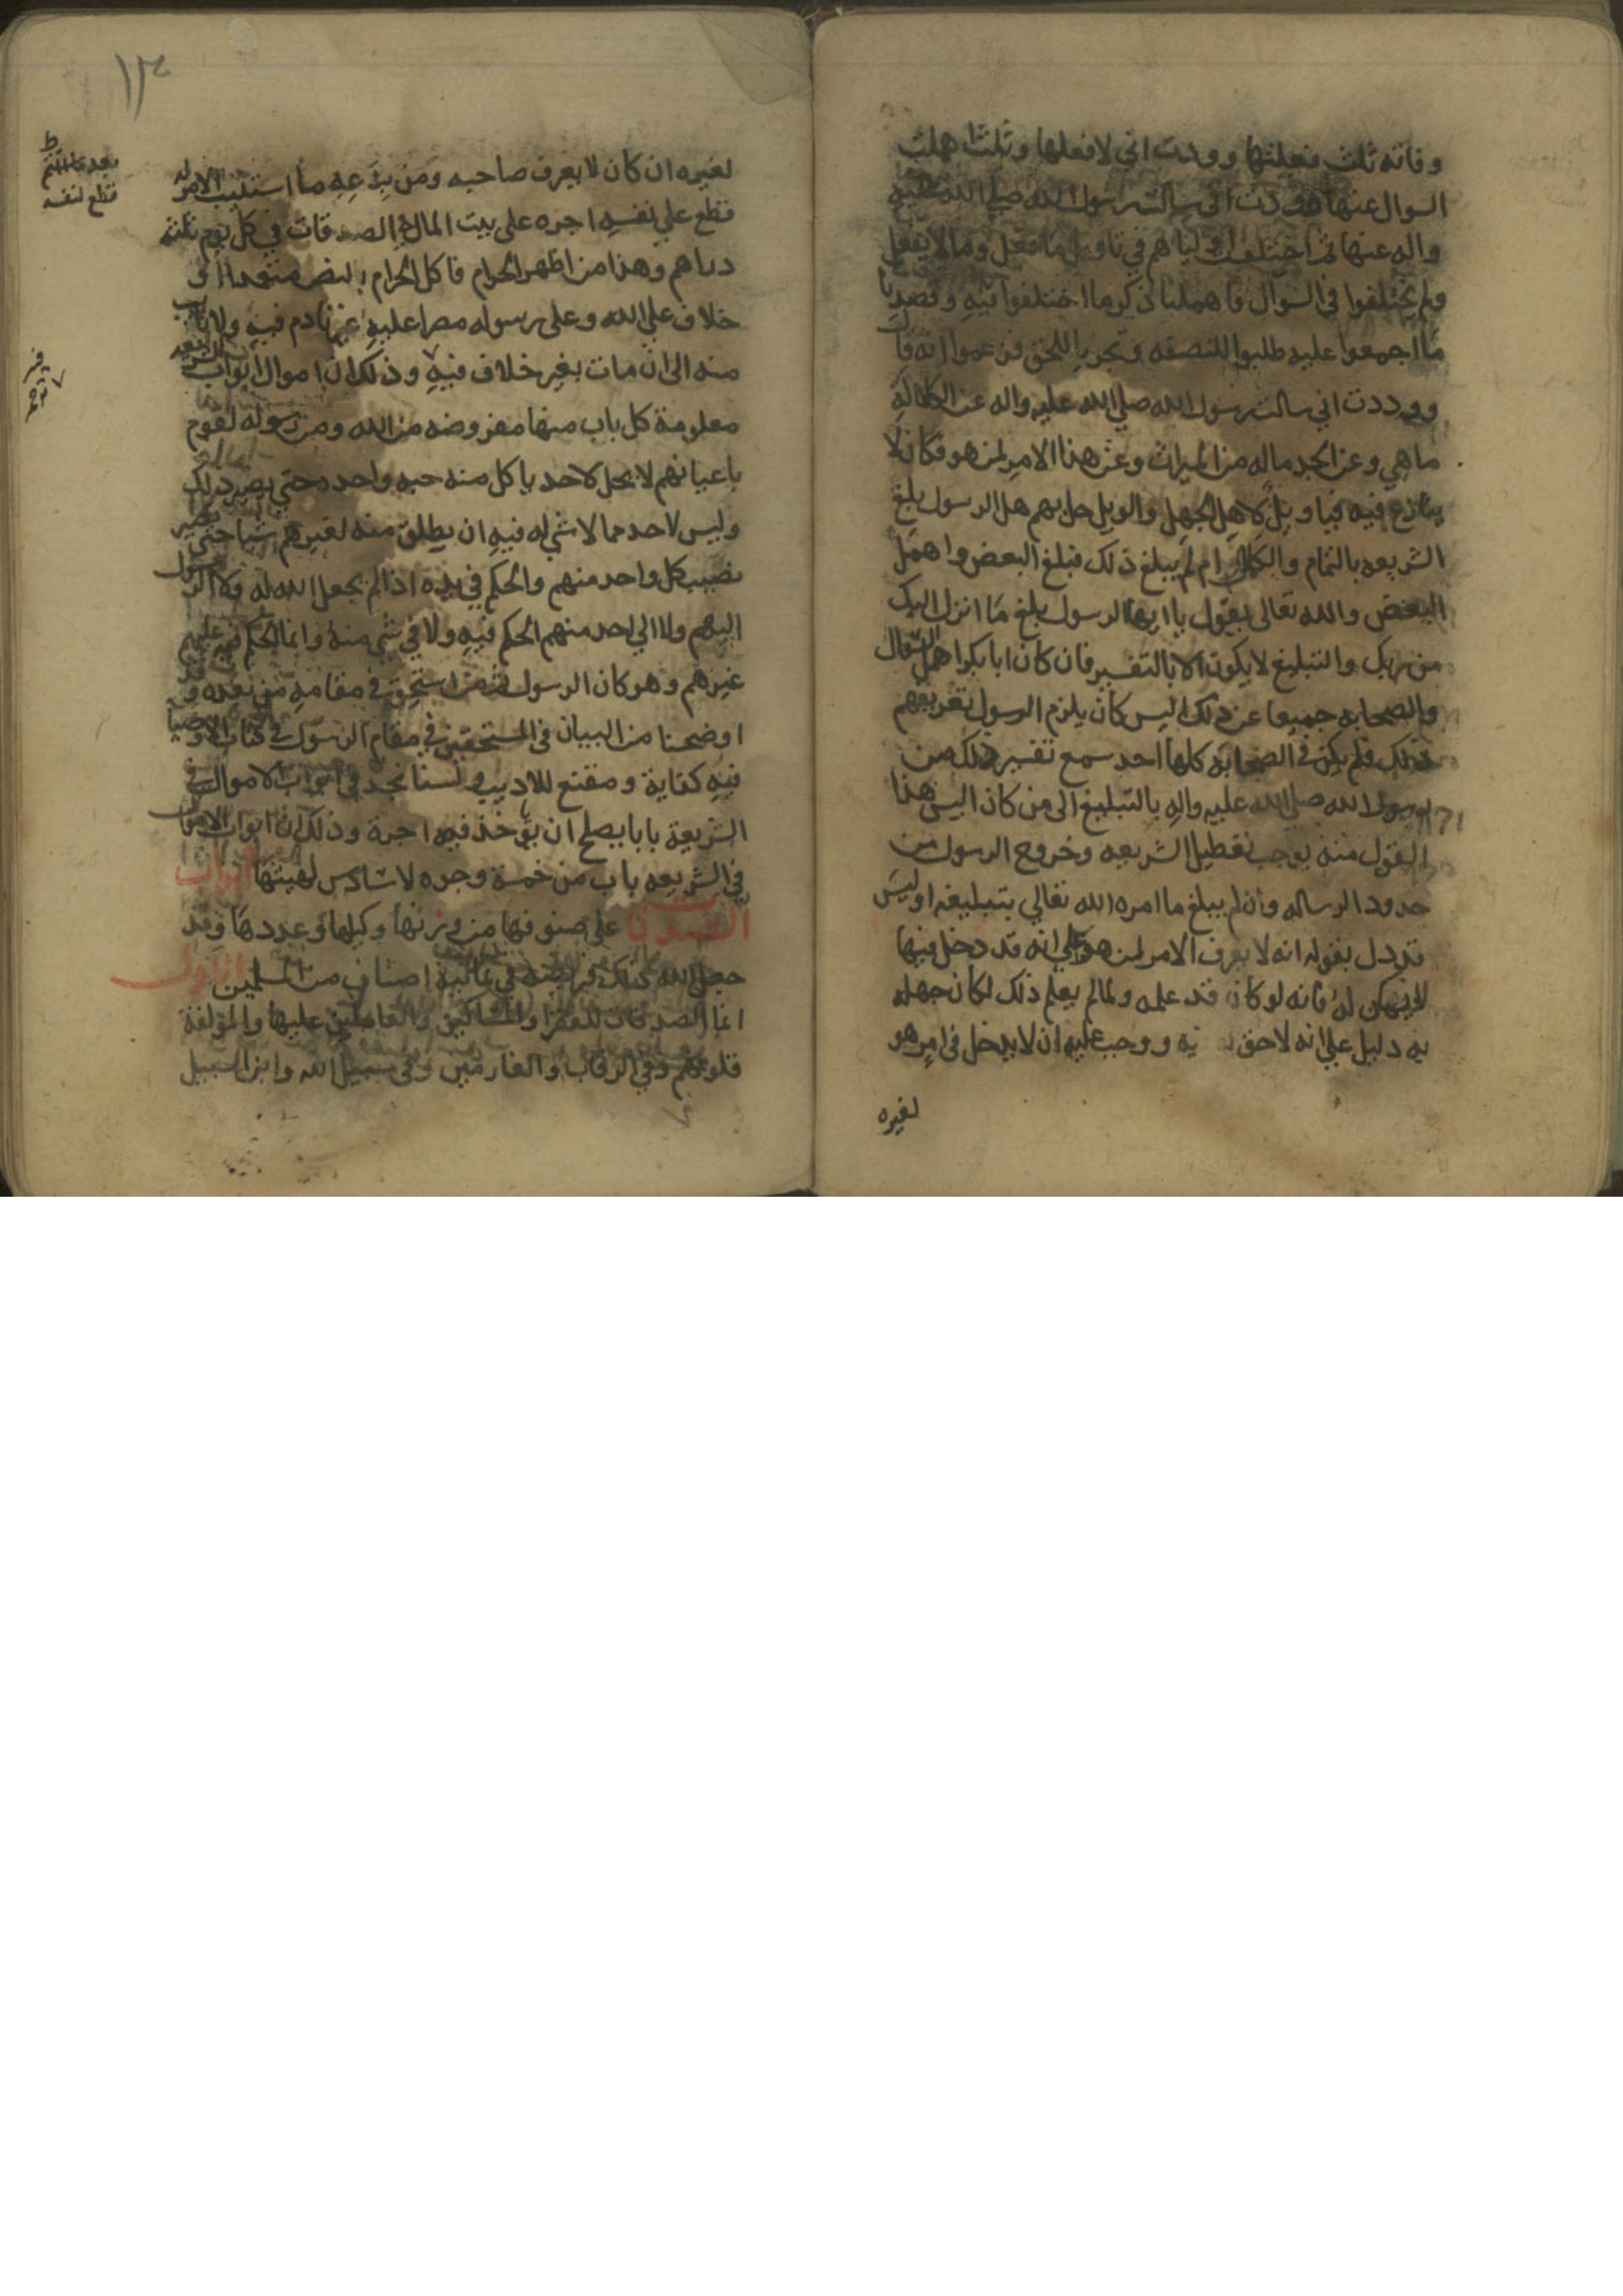 وفاته ثلث فعلتها ووددت اني لا فعلها وثلث اهملت
السوال عنها ووددت اني سالت رسول الله صلي الله عليه
واله عنها ثم اختلف اولياهم في تاويل ما فعل وما لا يفعل
ولم يختلفوا في السوال فاهملنا ذكر ما اختلفوا فيه وقصدنا
ما اجمعوا عليه طلبوا للنصفه وتحريا للحق فزعموا انه قال
ووددت اني سالت رسول الله صلي الله عليه واله عن الكلالة
ما هي وعن الجد ماله من الميراث وعن هذا الامر لمن هو فكان لا
ينازع فيه فيا ويل لاهل الجهل والويل حل بهم هل الرسول بلغ
الشريعه بالتمام والكمال ام لم يبلغ ذلك فبلغ البعض واهمل
البعض والله تعالى يقول يا ايها الرسول بلغ ما انزل اليك
من ربك والتبليغ لا يكون الا بالتفسير فان كان ابا بكر اهمل السوال
والصحابه جميعا عن ذلك اليس كان يلزم الرسول تعريفهم
ذلك فلم يكن في الصحابة كلها احد سمع تفسير ذلك من
رسول الله صلي الله عليه واله بالتبليغ الى من كان اليس هذا
القول منه يوجب تعطيل الشريعه وخروج الرسول من
حدود الرساله وان لم يبلغ ما امره الله تعالي بتبليغه اوليس
قد دل بقوله انه لا يعرف الامر لمن هو علي انه قد دخل فيها
لا يمكن له فانه لو كان قد علمه ولما لم يعلم ذلك لكان جهله
به دليل علي انه لا حق فيه ووجب عليه ان لا يدخل في امر هو
لغيره
١٣
لغيره ان كان لا يعرف صاحبه ومن بدعه ما استليب الامر له
قطع علي نفسه اجره على بيت المال الصدقات في كل يوم ثلثة
دراهم وهذا من اظهر الحرام فاكل الحرام متعمدا
خلاف علي الله وعلى رسوله مصرا عليه غير نادم فيه ولا تايب
منه الى ان مات بغير خلاف فيه وذلك ان اموال ابواب الشريعة
معلومة كل باب منها مفروضه من الله ومن رسوله لقوم
باعيانهم لا يحل لاحد ياكل منه حبه واحده حتى يصير ذلك
وليس لاحد مما لا شي له فيه ان يطلق منه لغيرهم شيا حتى يصير
نصيب كل واحد منهم والحكم في يده اذ لم يجعل الله له ولا الرسول
اليهم ولا الي احد منهم الحكم فيه ولا في شي منه وانما الحكم فيه عليهم
غيرهم وهو كان الرسول ثم من استحق في مقامه من بعده وقد
اوضحنا من البيان في المستحقين في مقام الرسول في كتاب الاوصيا
فيه كفاية ومقنع للاديب ولسنا نجد في ابواب الاموال في
الشريعة بابا يصلح ان يؤخذ فيه اجرة وذلك ان ابواب الاموال
في الشريعه باب من خمسة وجوه لا سادس لها ابواب
الصدقات على صنوفها من وزنها وكيلها وعددها وقد
جعل الله ذلك فريضه في ثمانية اصناف من المسلمين
انما الصدقات للفقرا والمساكين والعاملين عليها والمؤلفة
قلوبهم وفي الرقاب والغارمين وفي سبيل الله وابن السبيل